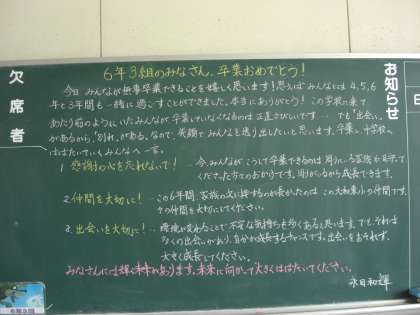 欠席者
お知らせ
6年3組のみなさん、卒業おめでとう!
今日、みんなが無事卒業できることを嬉しく思います!思えばみんなとは4,5,6
年と3年間も一緒に過ごすことができました。本当にありがとう!この学校に来て
あたり前のようにいたみんなが卒業していなくなるのは正直さびしいです…でも「出会い」
があるから、「別れ」がある。なので、笑顔でみんなを送り出したいと思います。今日、中学校へ
はばたいていくみんなへ一言。
1 感謝の心を忘れないで!… 今、みんながこうして卒業できるのは周りにいる家族や
くださった方々のおかげです。周りがいるから成長できます。
2.仲間を大切に!… この6年間、家族の次に接するのが長かったのは、この
その仲間を大切にしてください。
3.出会いを大切に!… 環境が変わることで不安な気持ちも多くあると思います。でも、それは
多くの出会いがあり、自分が成長するチャンスです。出会いをおそれず、
大きく成長してください。
みなさんには輝く未来があります。未来に向かって大きくはばたいてください。